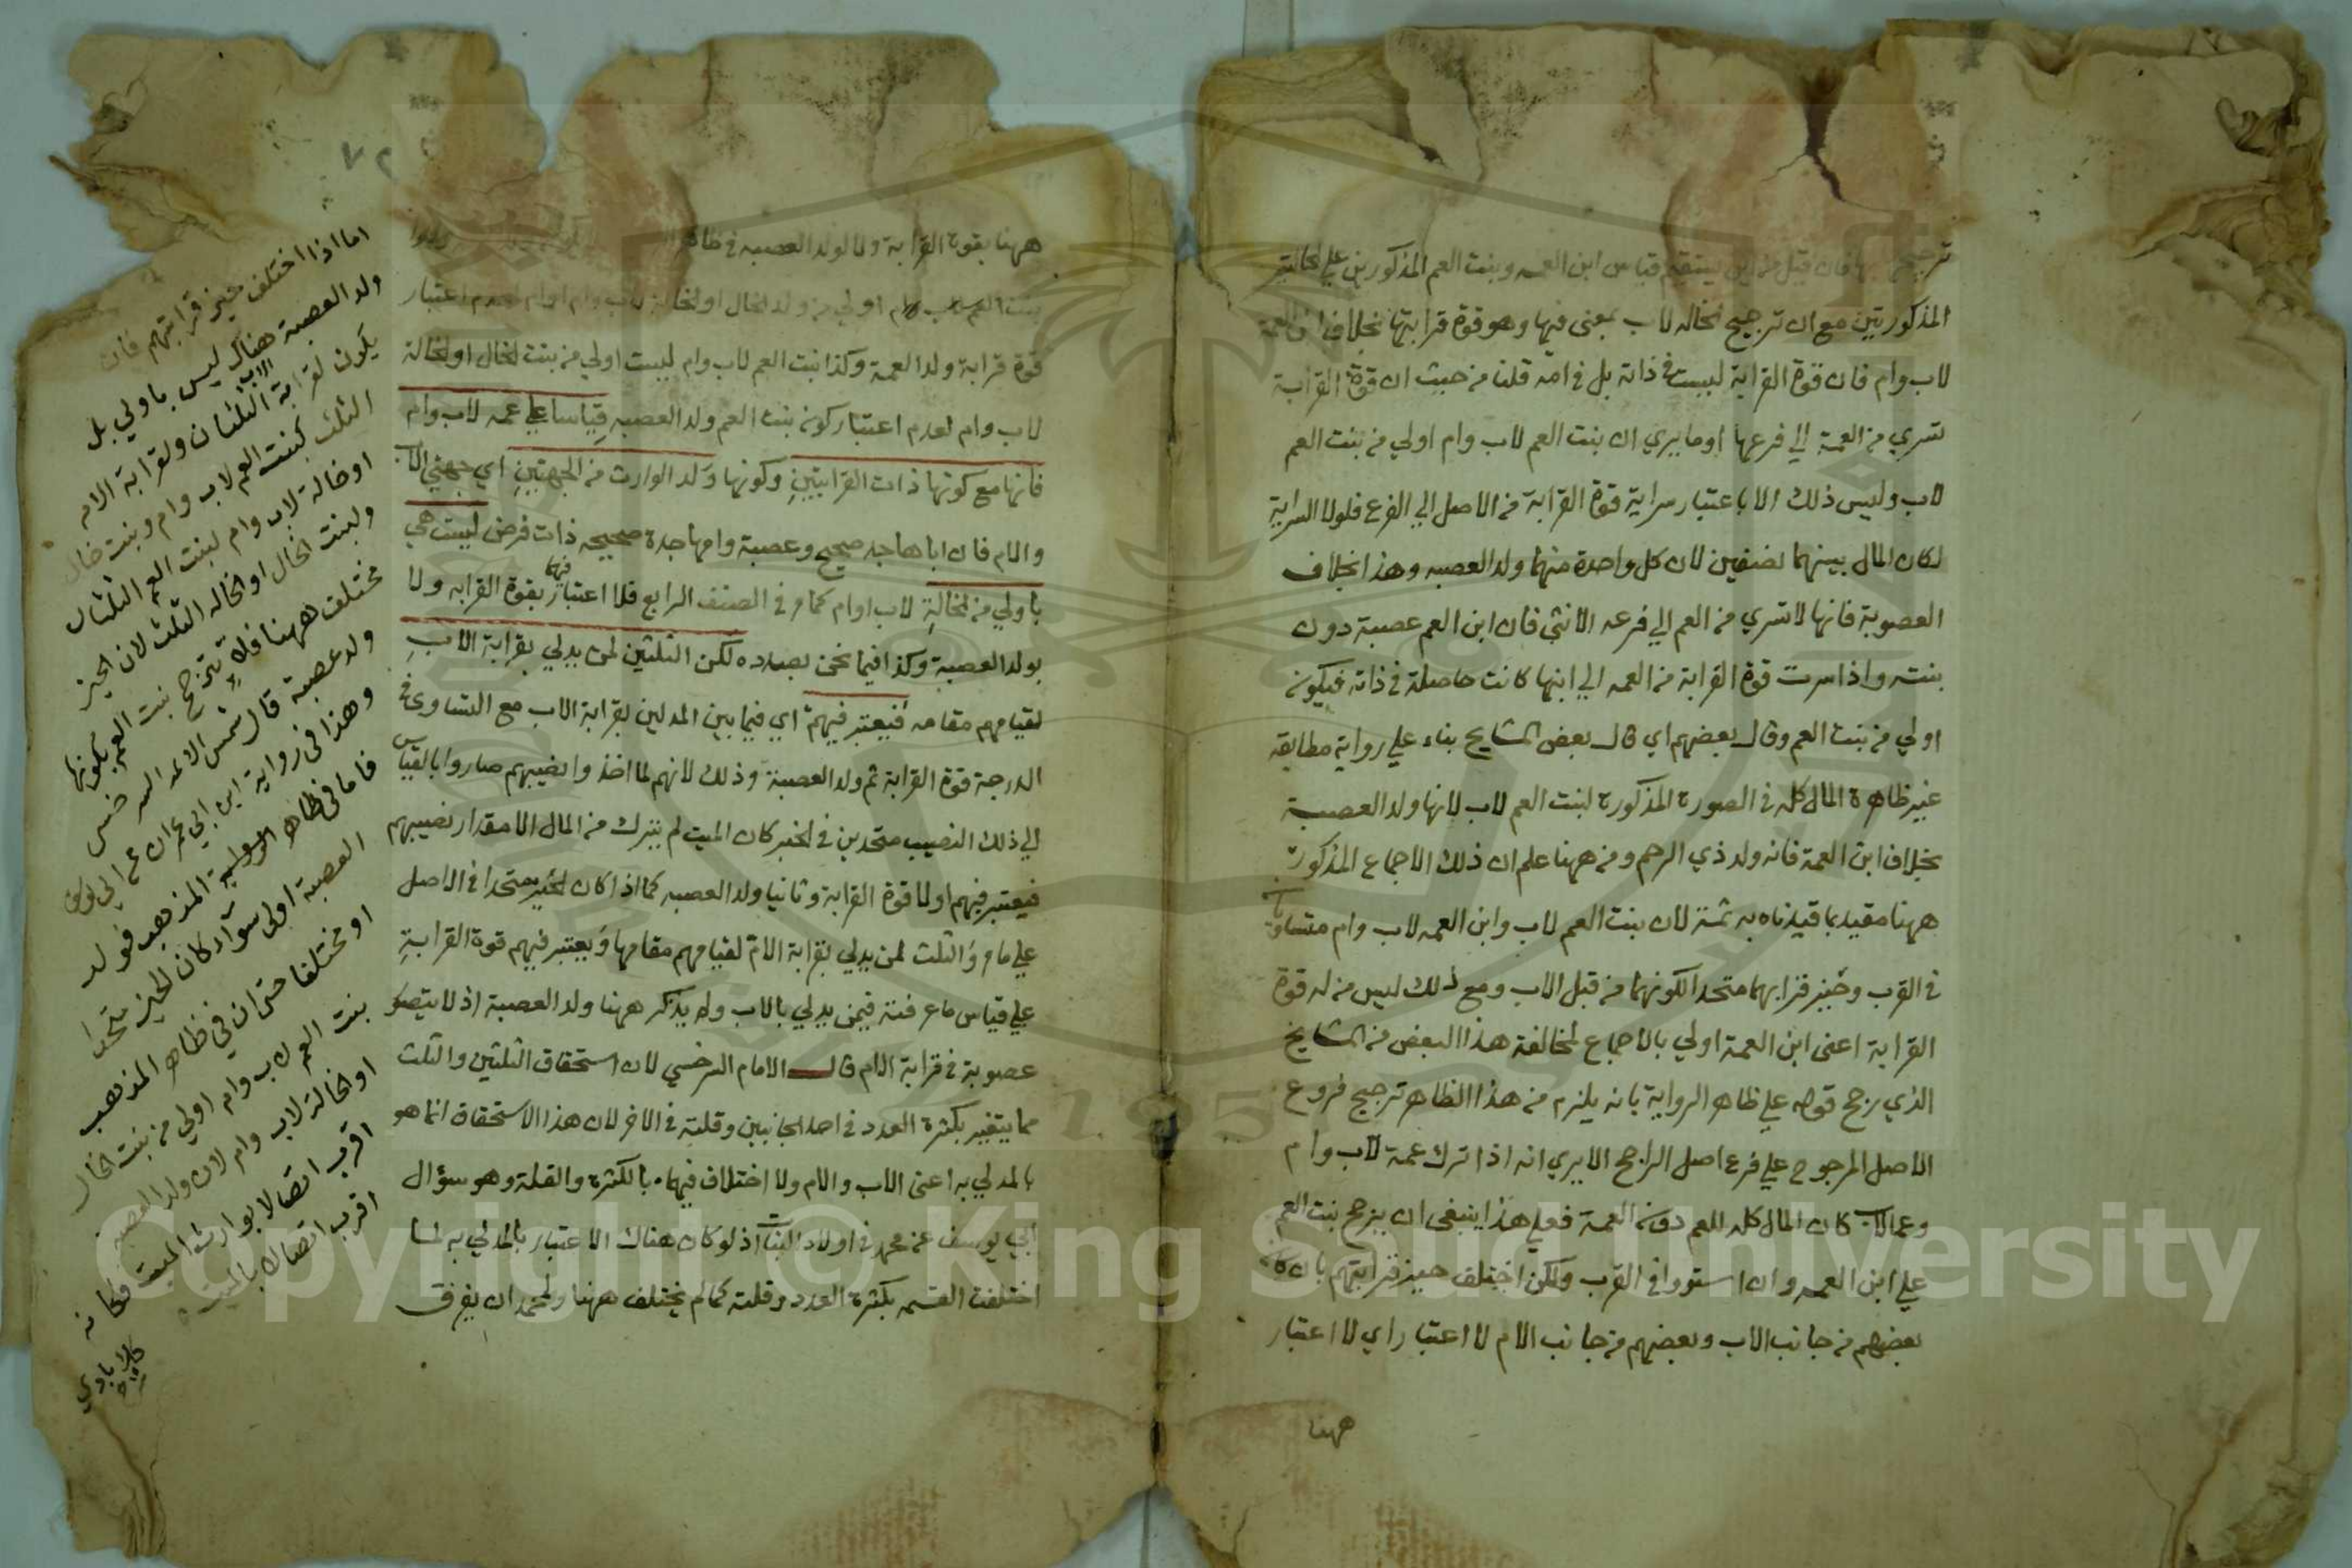 فان قيل قياس ابن العمه وبنت العم المذكورين علي الخالتين
المذكورتين مع ان ترجيح الخاله لاب بمعنى فيها وهو قوة قرابتها بخلاف ابن العمة
لاب وام فان قوة القرابة ليست في ذاته بل في امه قلنا من حيث ان قوة القرابة
تسري من العمة الي فرعها اوما يري ان بنت العم لاب وام اولي من بنت العم
لاب وليس ذلك الا باعتبار سراية قوة القرابة من الاصل الي الفرع فلولا السراية
لكان المال بينهما نصفين لان كل واحدة منهما ولد العصبه وهذا بخلاف
العصوبة فانها لا تسري من العم الي فرعه الانثي فان ابن العم عصبة دون
بنته واذا سرت قوة القرابة من العمه الي ابنها كانت حاصلة في ذاته فيكون
اولي من بنت العم وقال بعضهم اي قال بعض المشايخ بناء علي رواية مطابقه
غير ظاهرة المال كله في الصورة المذكورة لبنت العم لاب لانها ولد العصبة
بخلاف ابن العمة فانه ولد ذي الرحم ومن ههنا علم ان ذلك الاجماع المذكور
ههنا مقيد بما قيدناه به ثمة لان بنت العم لاب وابن العمه لاب وام متساويان
في القرب وحيز قرابهما متحد الكونهما من قبل الاب ومع ذلك ليس من له قوة
القرابة اعنى ابن العمة اولي بالاجماع لمخالفة هذا البعض من المشايخ
الذي رجح قوله علي ظاهر الرواية بانه يلزم من هذا الظاهر ترجيح فروع
الاصل المرجوح علي فرع اصل الراجح الا يري انه اذا ترك عمة لاب وام
وعما لاب كان المال كله للعم دون العمة فعلي هذا ينبغي ان يرجح بنت العم
علي ابن العمه وان استووا في القرب ولكن اختلف حيز قرابتهم بان كان
بعضهم من جانب الاب وبعضهم من جانب الام لا اعتبار اي لا اعتبار
ههنا
٧٢
ههنا بقوة القرابة ولا لولد العصبه في ظاهر
بنت العم لاب وام اولي من ولد الخال او الخالة لاب وام او لام لعدم اعتبار
قوة قرابة ولد العمة وكذا بنت العم لاب وام ليست اولي من بنت الخال او الخالة
لاب وام لعدم اعتبار كون بنت العم ولد العصبه قياسا علي عمه لاب وام
فانها مع كونها ذات القرابتين وكونها ولد الوارث من الجهتين اي جهتي الاب
والام فان اباها جد صحيح وعصبة وامها جدة صحيحه ذات فرض ليست هي
باولي من الخالة لاب او ام كما مر في الصنف الرابع فلا اعتبار فيها بقوة القرابه ولا
بولد العصبة وكذا فيما نحن بصدده لكن الثلثين لمن يدلي بقرابة الاب
لقيامهم مقامه فيعتبر فيهم اي فيما بين المدلين بقرابة الاب مع التساوي في
الدرجة قوة القرابة ثم ولد العصبة وذلك لانهم لما اخذوا نصيبهم صاروا بالقياس
الي ذلك النصيب متحدين في الحيز كان الميت لم يترك من المال الا مقدار نصيبهم
فيعتبر فيهم اولا قوة القرابة وثانيا ولد العصبه كما اذا كان الحيز متحدا في الاصل
علي ما مر والثلث لمن يدلي بقرابة الام لقيامهم مقامها ويعتبر فيهم قوة القرابة
علي قياس ما عرفته فيمن يدلي بالاب ولم يذكر ههنا ولد العصبة اذ لا يتصور
عصوبة في قرابة الام قال الامام السرخسي لان استحقاق الثلثين والثلث
مما يتغير بكثرة العدد في احد الجانبين وقلته في الاخر لان هذا الاستحقاق انما هو
بالمدلي به اعنى الاب والام ولا اختلاف فيهما بالكثرة والقلة وهو سؤال
ابي يوسف عن محمد في اولاد البنات اذ لو كان هناك الاعتبار بالمدلي به لما
اختلفت القسمه بكثرة العدد وقلته كما لم يختلف ههنا ولمحمد ان يفرق
اما اذا اختلف حيز قرابتهم فان
ولد العصبة هناك ليس باولي بل
يكون لقرابة الاب الثلثان ولقرابة الام
الثلث كبنت العم لاب وام وبنت خال
او خالة لاب وام لبنت العم الثلثان
ولبنت الخال او الخاله الثلث لان الحيز
مختلف ههنا فلا يترجح بنت العم بكونها
ولد عصبة قال شمس الائمه السرخسي
وهذا في رواية ابن ابي عمران عن ابي يوسف
فاما في ظاهر الرواية المذهب فولد
العصبة اولى سواء كان الحيز متحدا
او مختلفا حتى ان في ظاهر المذهب
بنت العم لاب وام اولي من بنت الخال
او الخالة لاب وام لان ولد العصبه
اقرب اتصالا بوارث الميت فكانه
اقرب اتصالا بالميت
Copyright © King Saud University